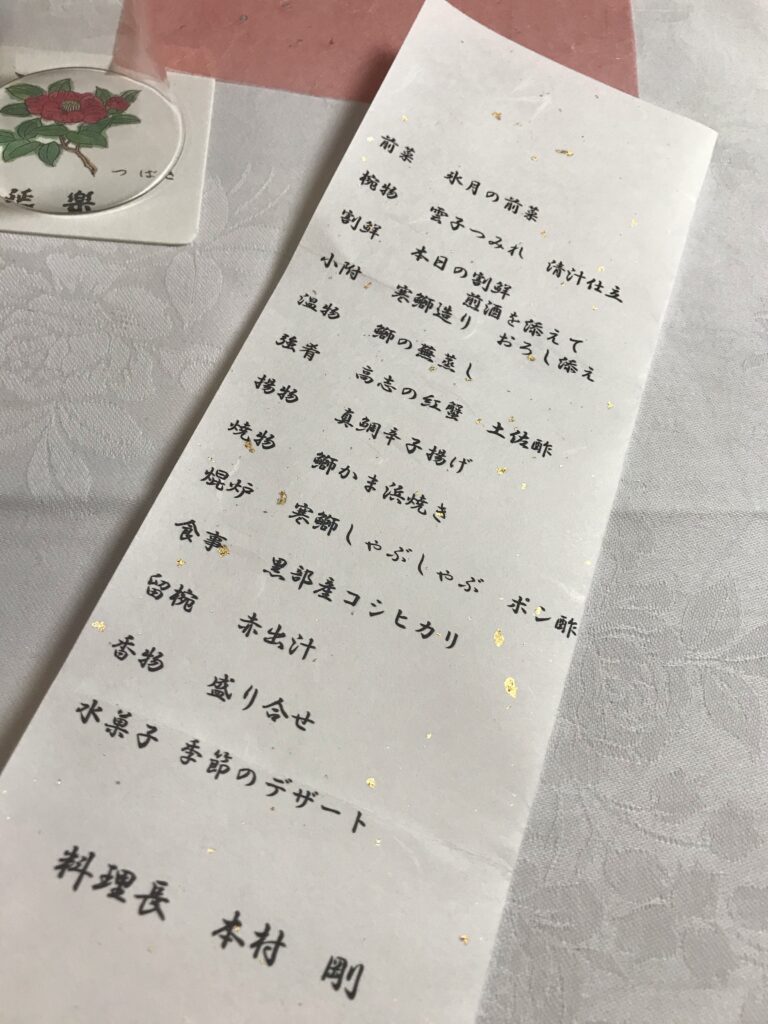 つばき
延楽
前菜　氷月の前菜
椀物　雲子つみれ　清汁仕立
割鮮　本日の割鮮　煎酒を添えて
小附　寒鰤造り　おろし添え
温物　鰤の蕪蒸し
強肴　高志の紅蟹　土佐酢
揚物　真鯛辛子揚げ
焼物　鰤かま浜焼き
焜炉　寒鰤しゃぶしゃぶ　ポン酢
食事　黒部産コシヒカリ
留椀　赤出汁
香物　盛り合せ
水菓子　季節のデザート
料理長　本村　剛